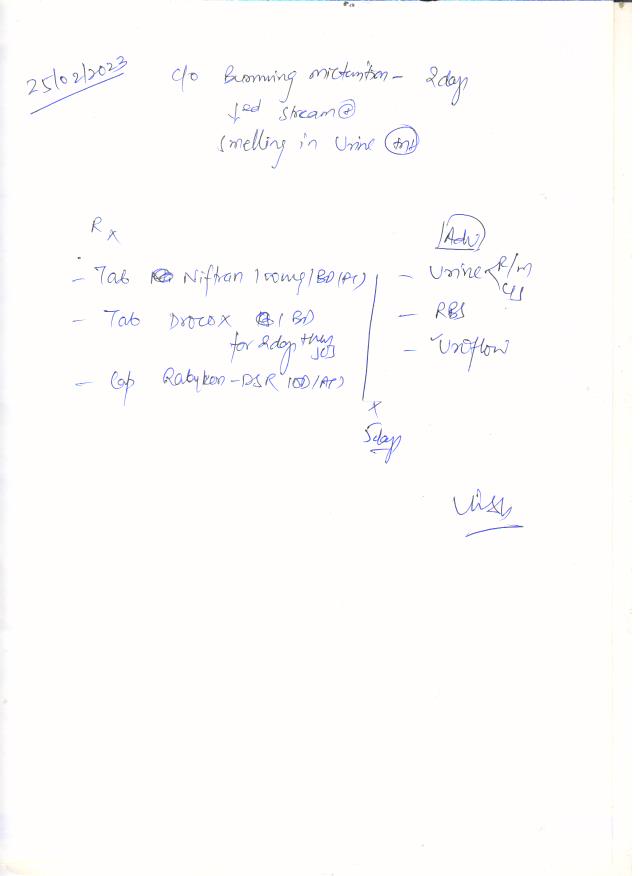 25/02/2023
c/o Burnning micturition - 2 days
↓ed stream ⊕
smelling in Urine
Rx
- Tab Niftran 100mg 1BD (PC)
- Tab Drocox 1 BD
for 2 days then
SOS
- Cap Rabyken-DSR 1OD/AC)
x
5days
Adv
- Urine < R/m
C/s
- RBS
- Uroflow